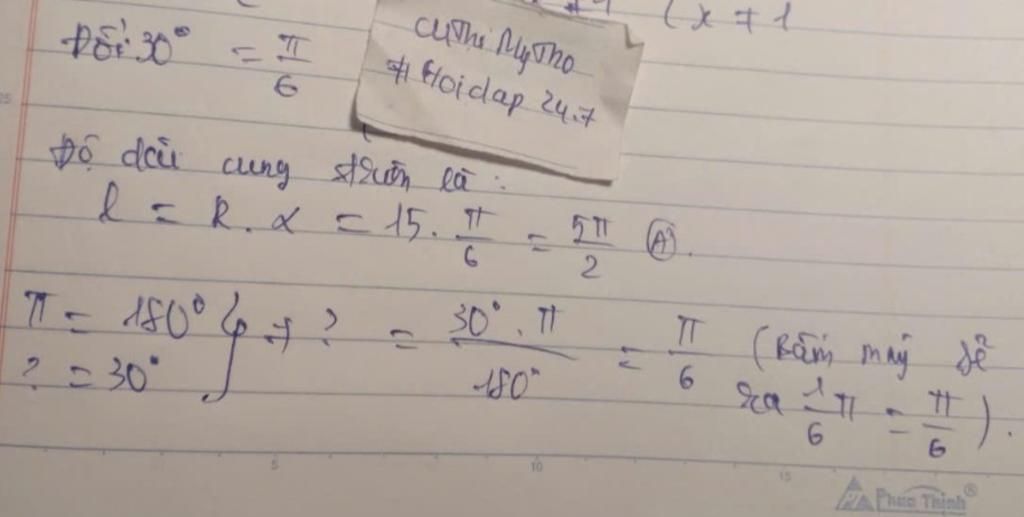 (x ≠ 1
Đổi 30° = π/6
CUThi MyTho
# Hoidap 24.7
Độ dài cung tròn là :
l = R . α = 15 . π/6 = 5π/2 (A).
π = 180° } → ? = 30° . π / 180° = π/6 (Bấm máy sẽ
? = 30°
ra 1/6 π = π/6 ) .
5 10 15
Phuc Thinh®
25